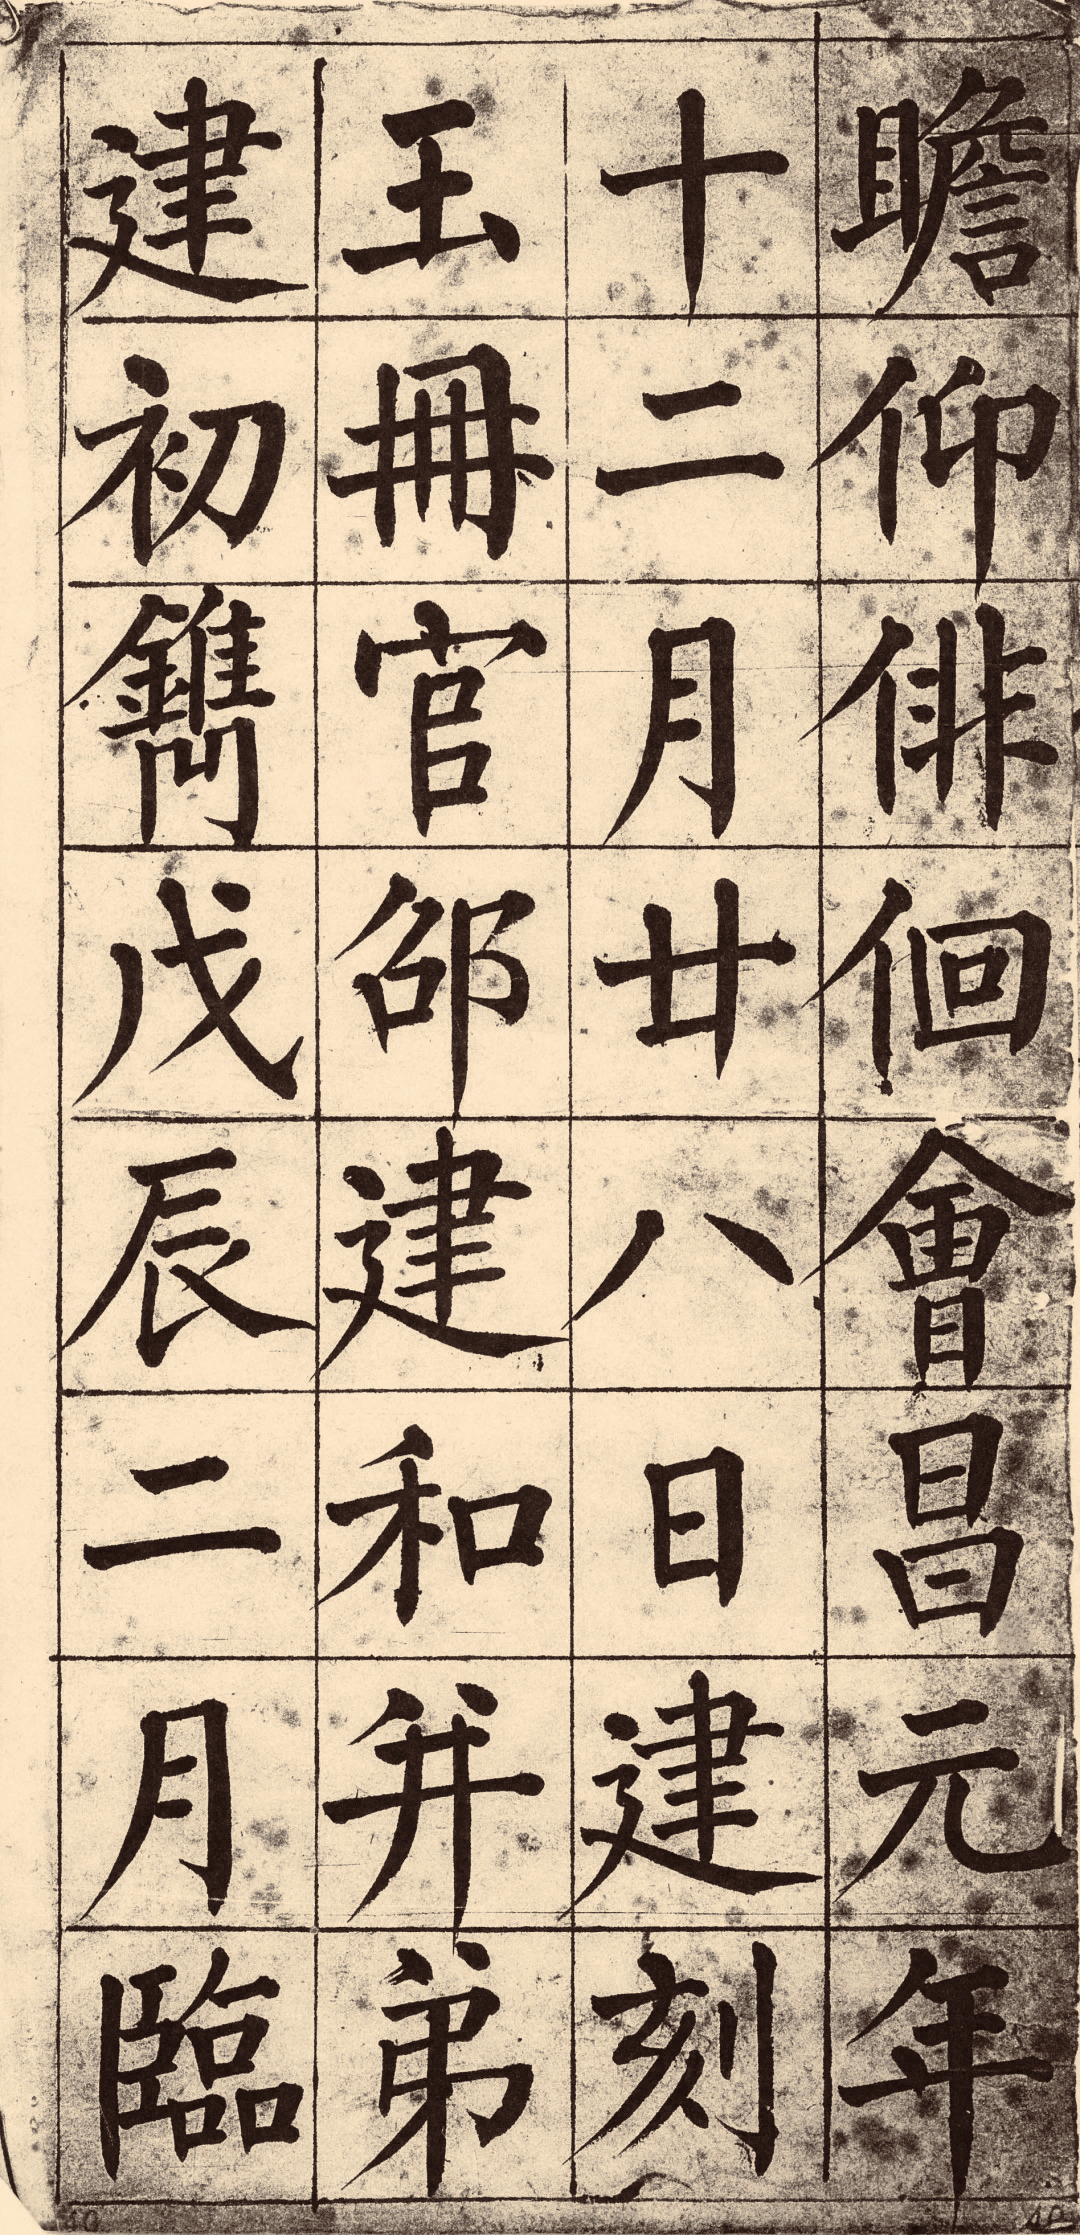 瞻仰俳佪會昌元年
十二月廿八日建刻
玉冊官邵建和并弟
建初鐫戊辰二月臨